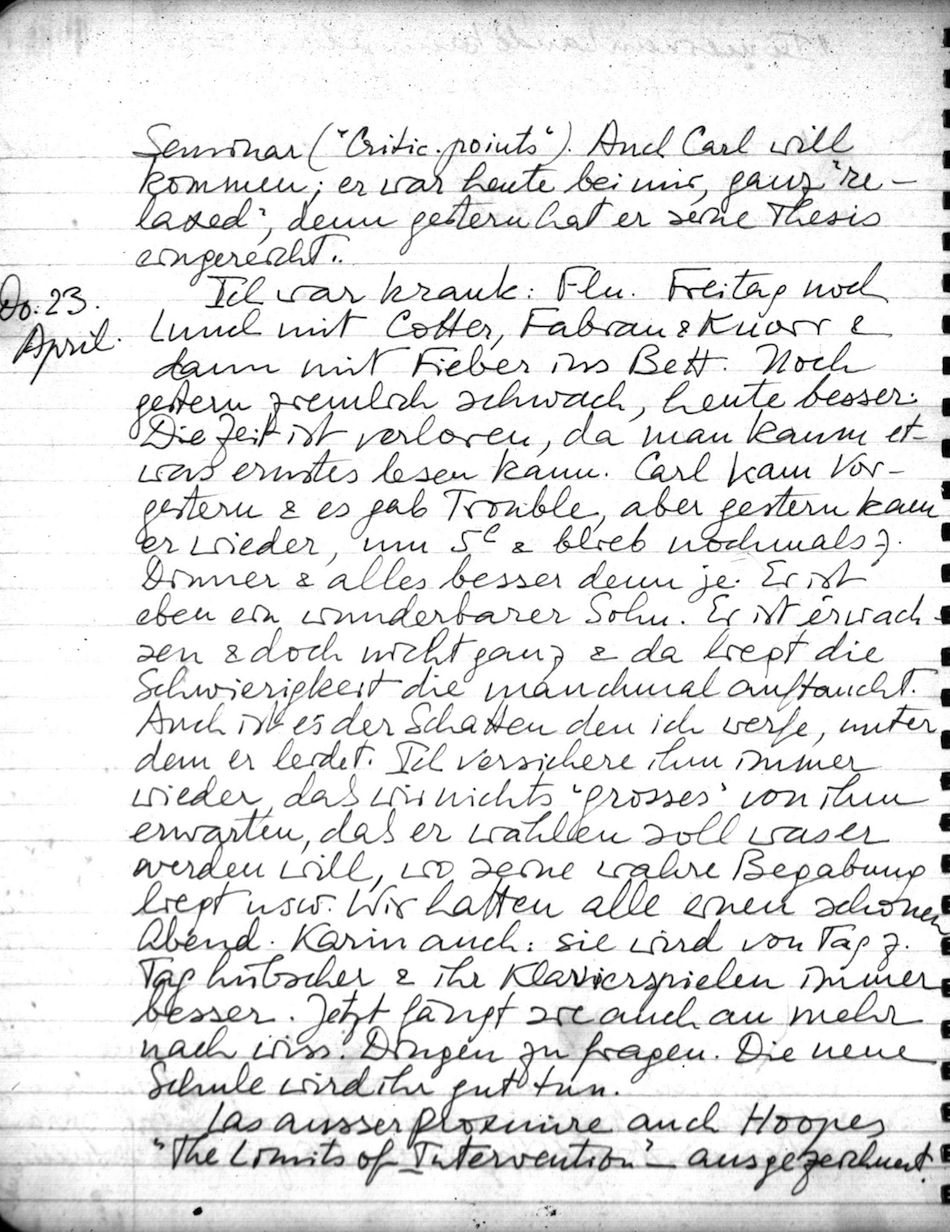 Seminar ("Critic. points"). Auch Carl will
kommen; er war heute bei mir, ganz "re-
laxed", denn gestern hat er seine Thesis
eingereicht.
Do. 23.
April.
Ich war krank: Flu. Freitag noch
Lunch mit Cotter, Fabian & Knorr &
dann mit Fieber ins Bett. Noch
gestern ziemlich schwach, heute besser.
Die Zeit ist verloren, da man kaum et-
was ernstes lesen kann. Carl kam vor-
gestern & es gab Trouble, aber gestern kam
er wieder, um 5h & blieb nochmals z.
Dinner & alles besser denn je. Er ist
eben ein wunderbarer Sohn. Er ist erwach-
sen & doch nicht ganz & da liegt die
Schwierigkeit die manchmal auftaucht.
Auch ist es der Schatten den ich werfe, unter
dem er leidet. Ich versichere ihm immer
wieder, das wir nichts "grosses" von ihm
erwarten, das er wählen soll was er
werden will, wo seine wahre Begabung
liegt usw. Wir hatten alle einen schönen
Abend. Karin auch: sie wird von Tag z.
Tag hübscher & ihr Klavierspielen immer
besser. Jetzt fängt sie auch an mehr
nach wiss. Dingen zu fragen. Die neue
Schule wird ihr gut tun.
Las ausser Proxmire auch Hoopes
"The Limits of Intervention" – ausgezeichnet.